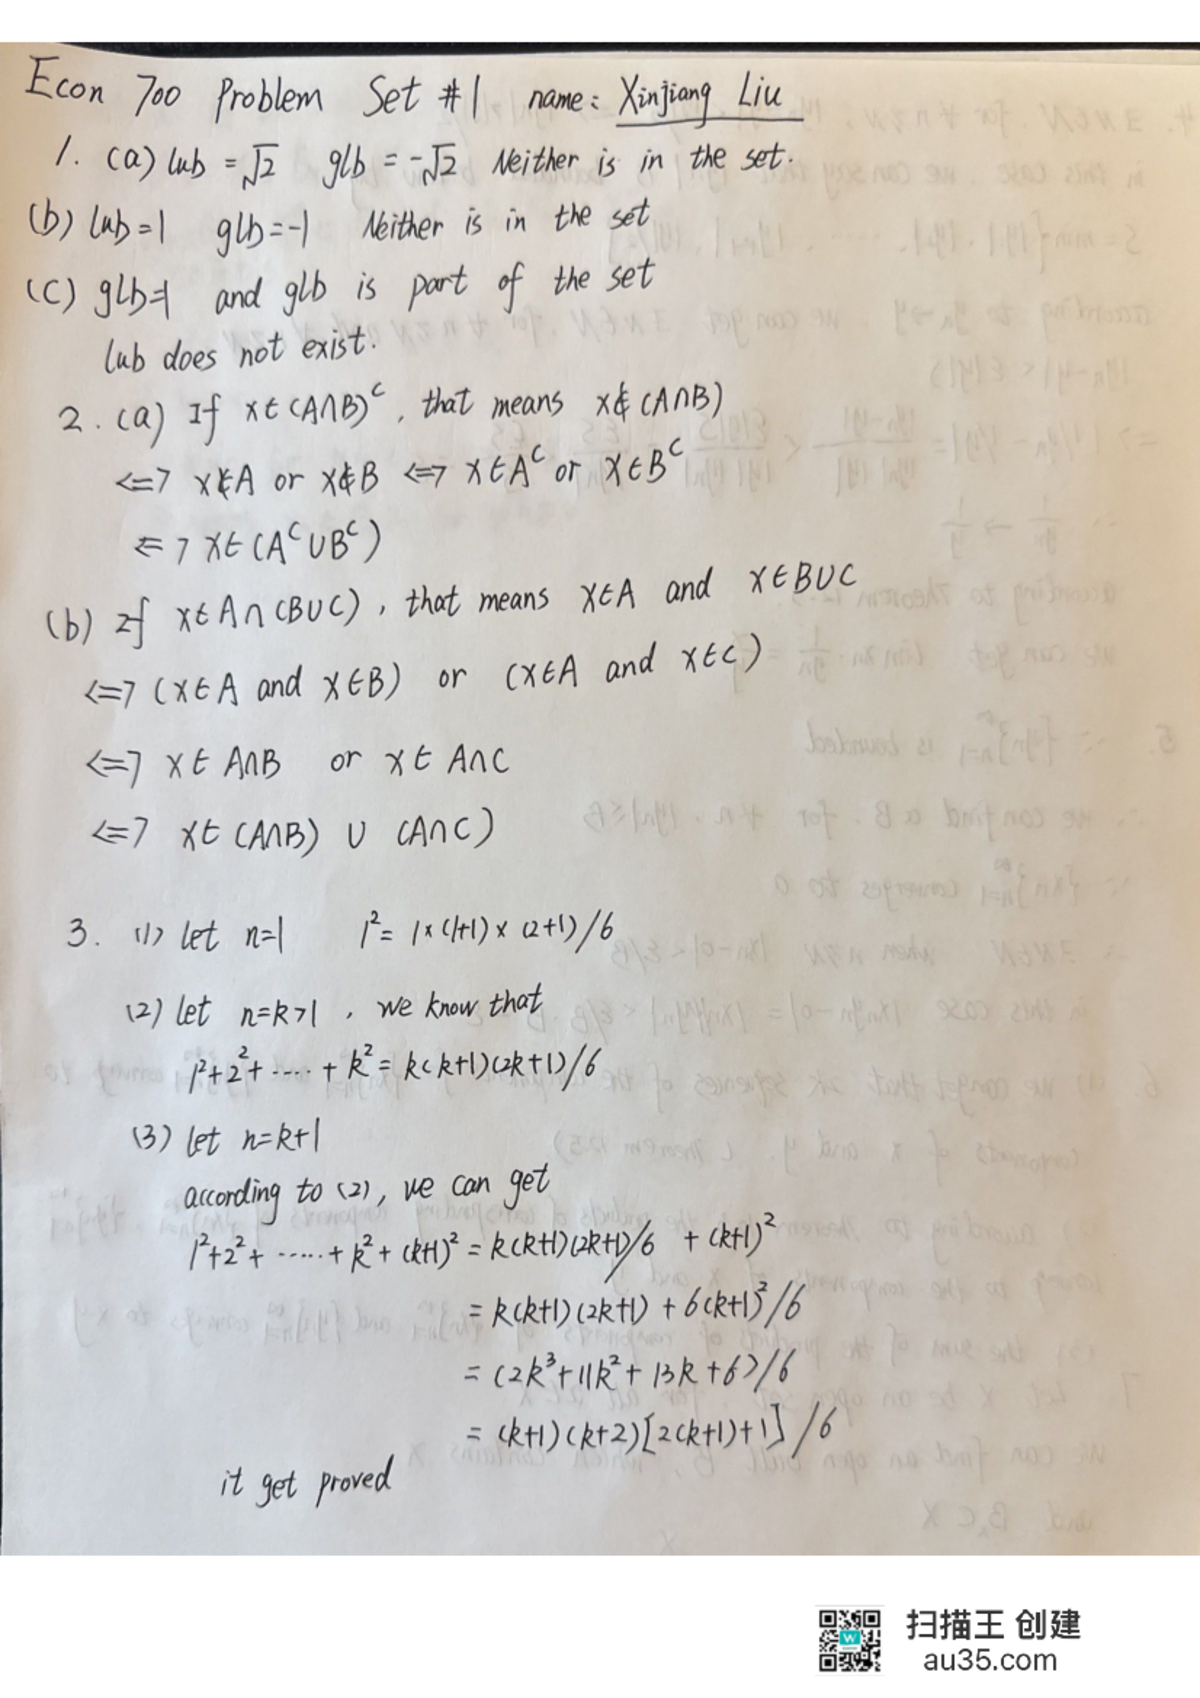 Econ 700 Problem Set #1 name: Xinjiang Liu
1. (a) lub = √2 glb = -√2 Neither is in the set.
(b) lub=1 glb=-1 Neither is in the set
(c) glb=1 and glb is part of the set
lub does not exist.
2. (a) If x∈(A∩B)ᶜ, that means x∉(A∩B)
<=> x∉A or x∉B <=> x∈Aᶜ or x∈Bᶜ
<=> x∈(Aᶜ∪Bᶜ)
(b) If x∈A∩(B∪C), that means x∈A and x∈B∪C
<=> (x∈A and x∈B) or (x∈A and x∈C)
<=> x∈A∩B or x∈A∩C
<=> x∈(A∩B) ∪ (A∩C)
3. (1) let n=1 1²= 1×(1+1)×(2+1)/6
(2) let n=k>1, we know that
1²+2²+ ····· + k² = k(k+1)(2k+1)/6
(3) let n=k+1
according to (2), we can get
1²+2²+ ······+ k²+ (k+1)² = k(k+1)(2k+1)/6 + (k+1)²
= k(k+1)(2k+1) + 6(k+1)²/6
= (2k³+11k²+ 13k +6)/6
= (k+1)(k+2)[2(k+1)+1] /6
it get proved
扫描王 创建
au35.com